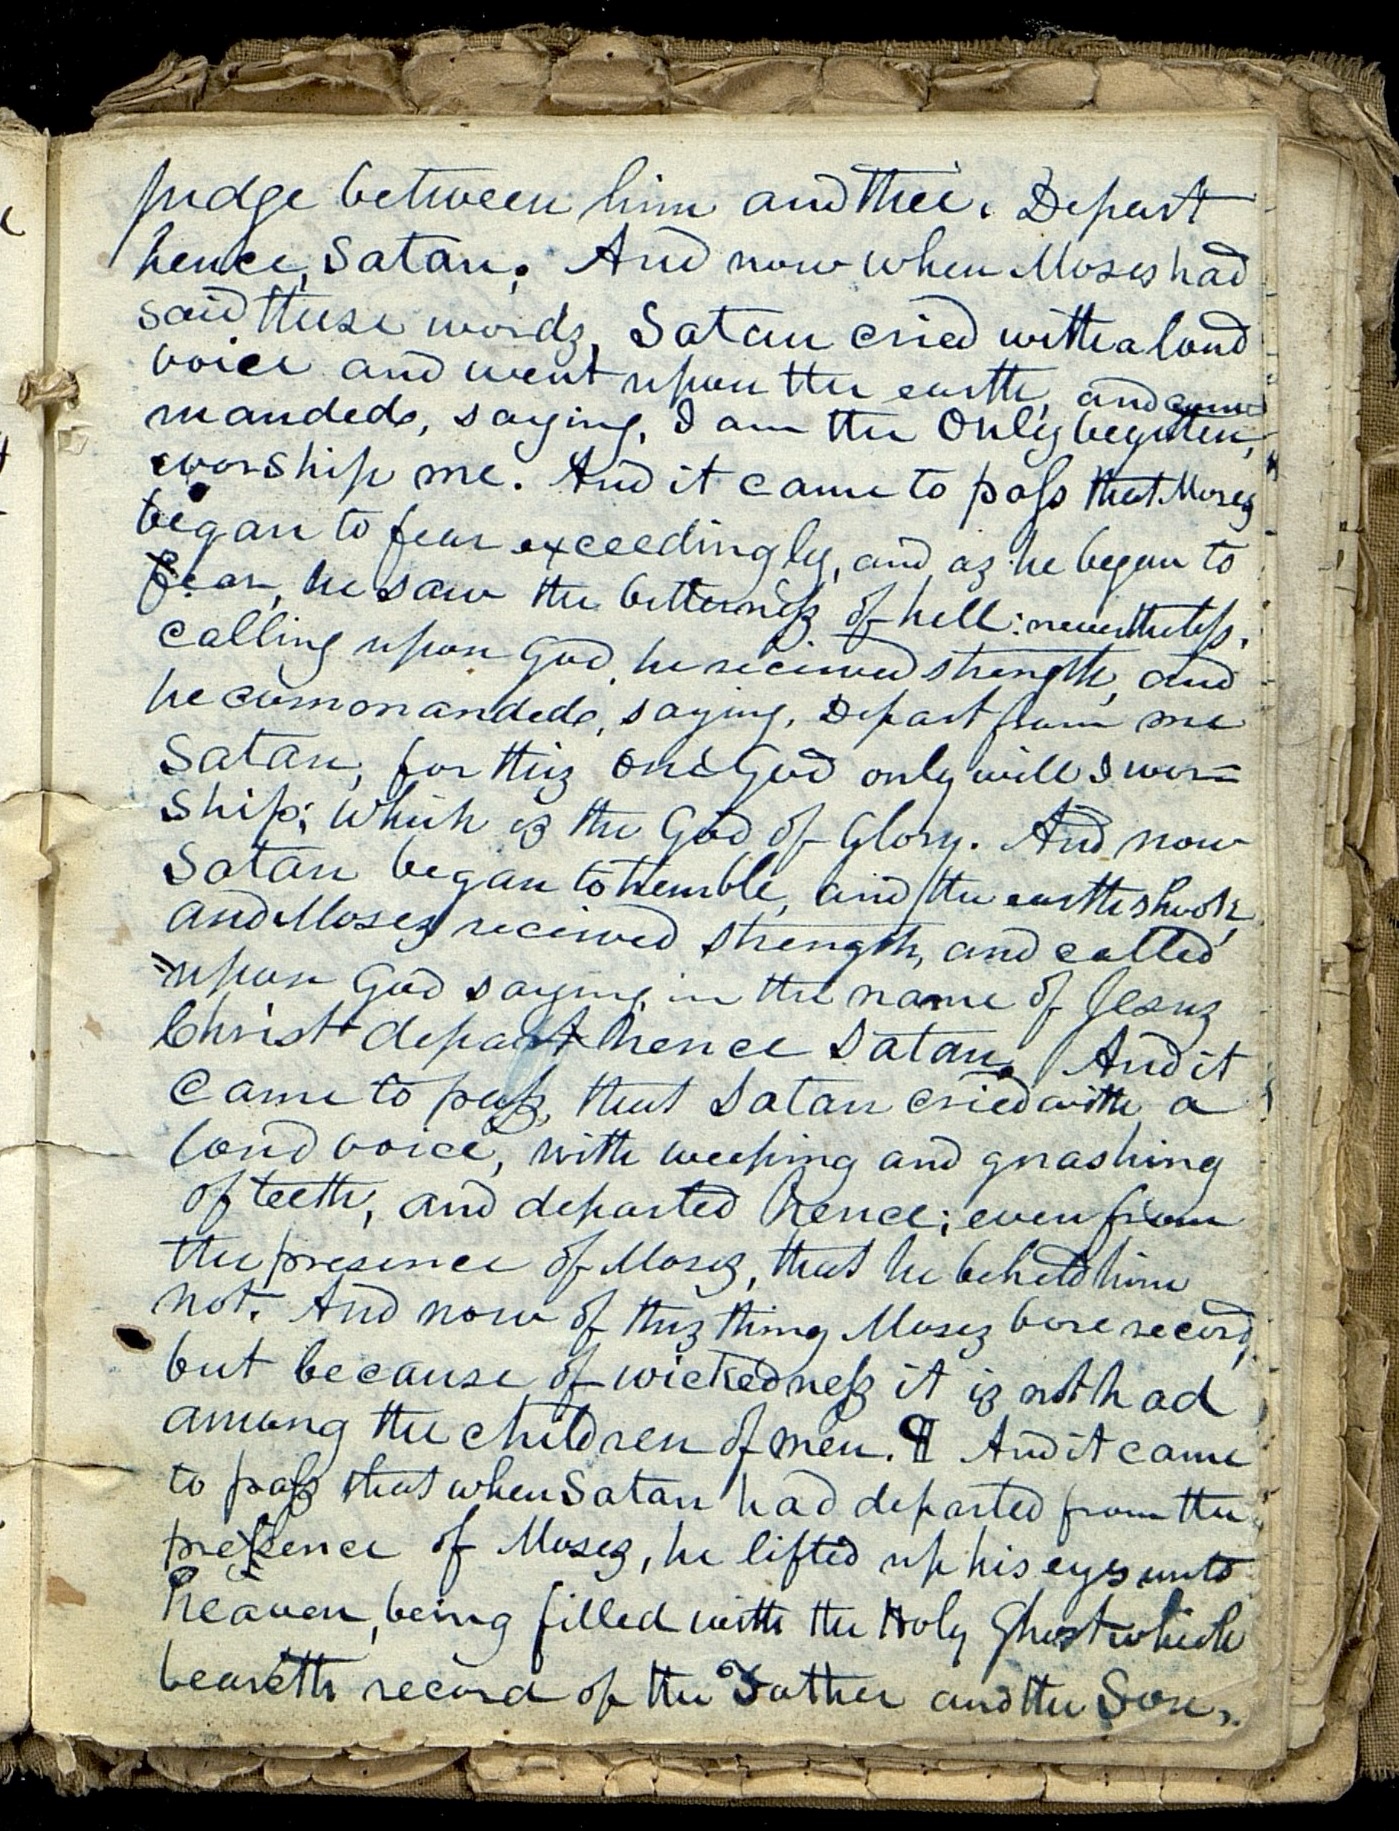 judge between him and thee. Depart
hence, Satan; And now when Moses had
said these words, Satan cried with a loud
voice and went upon the earth, and com
manded, saying, I am the Only begotten,
worship me. And it came to pass that Moses
began to fear exceedingly, and as he began to
fear, he saw the bitterness of hell: nevertheless,
calling upon God, he received strength, and
he commanded, saying, Depart from me
Satan, for this one God only will I wor=
ship; which is the God of Glory. And now
Satan began to tremble, and the earth shook,
and Moses received strength, and called
upon God saying, in the name of Jesus
Christ depart hence Satan. And it
came to pass, that Satan cried with a
loud voice, with weeping and gnashing
of teeth, and departed hence; even from
the presence of Moses, that he beheld him
not. And now of this thing Moses bore record,
but because of wickedness it is not had
among the children of men. ¶ And it came
to pass that when Satan had departed from the
presence of Moses, he lifted up his eyes unto
heaven, being filled with the Holy Ghost which
beareth record of the Father and the Son,